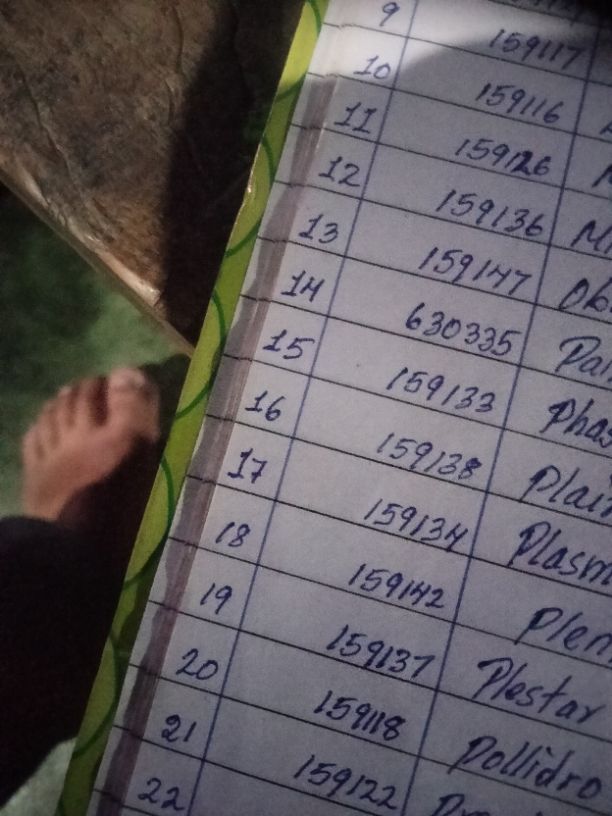 9 159117
10 159116
11 159126 M
12 159136 Mi
13 159147 Ob
14 630335 Pai
15 159133 Phas
16 159138 Plain
17 159134 Plasm
18 159142 Plen
19 159137 Plestar
20 159118 Pollidro
21 159122
22